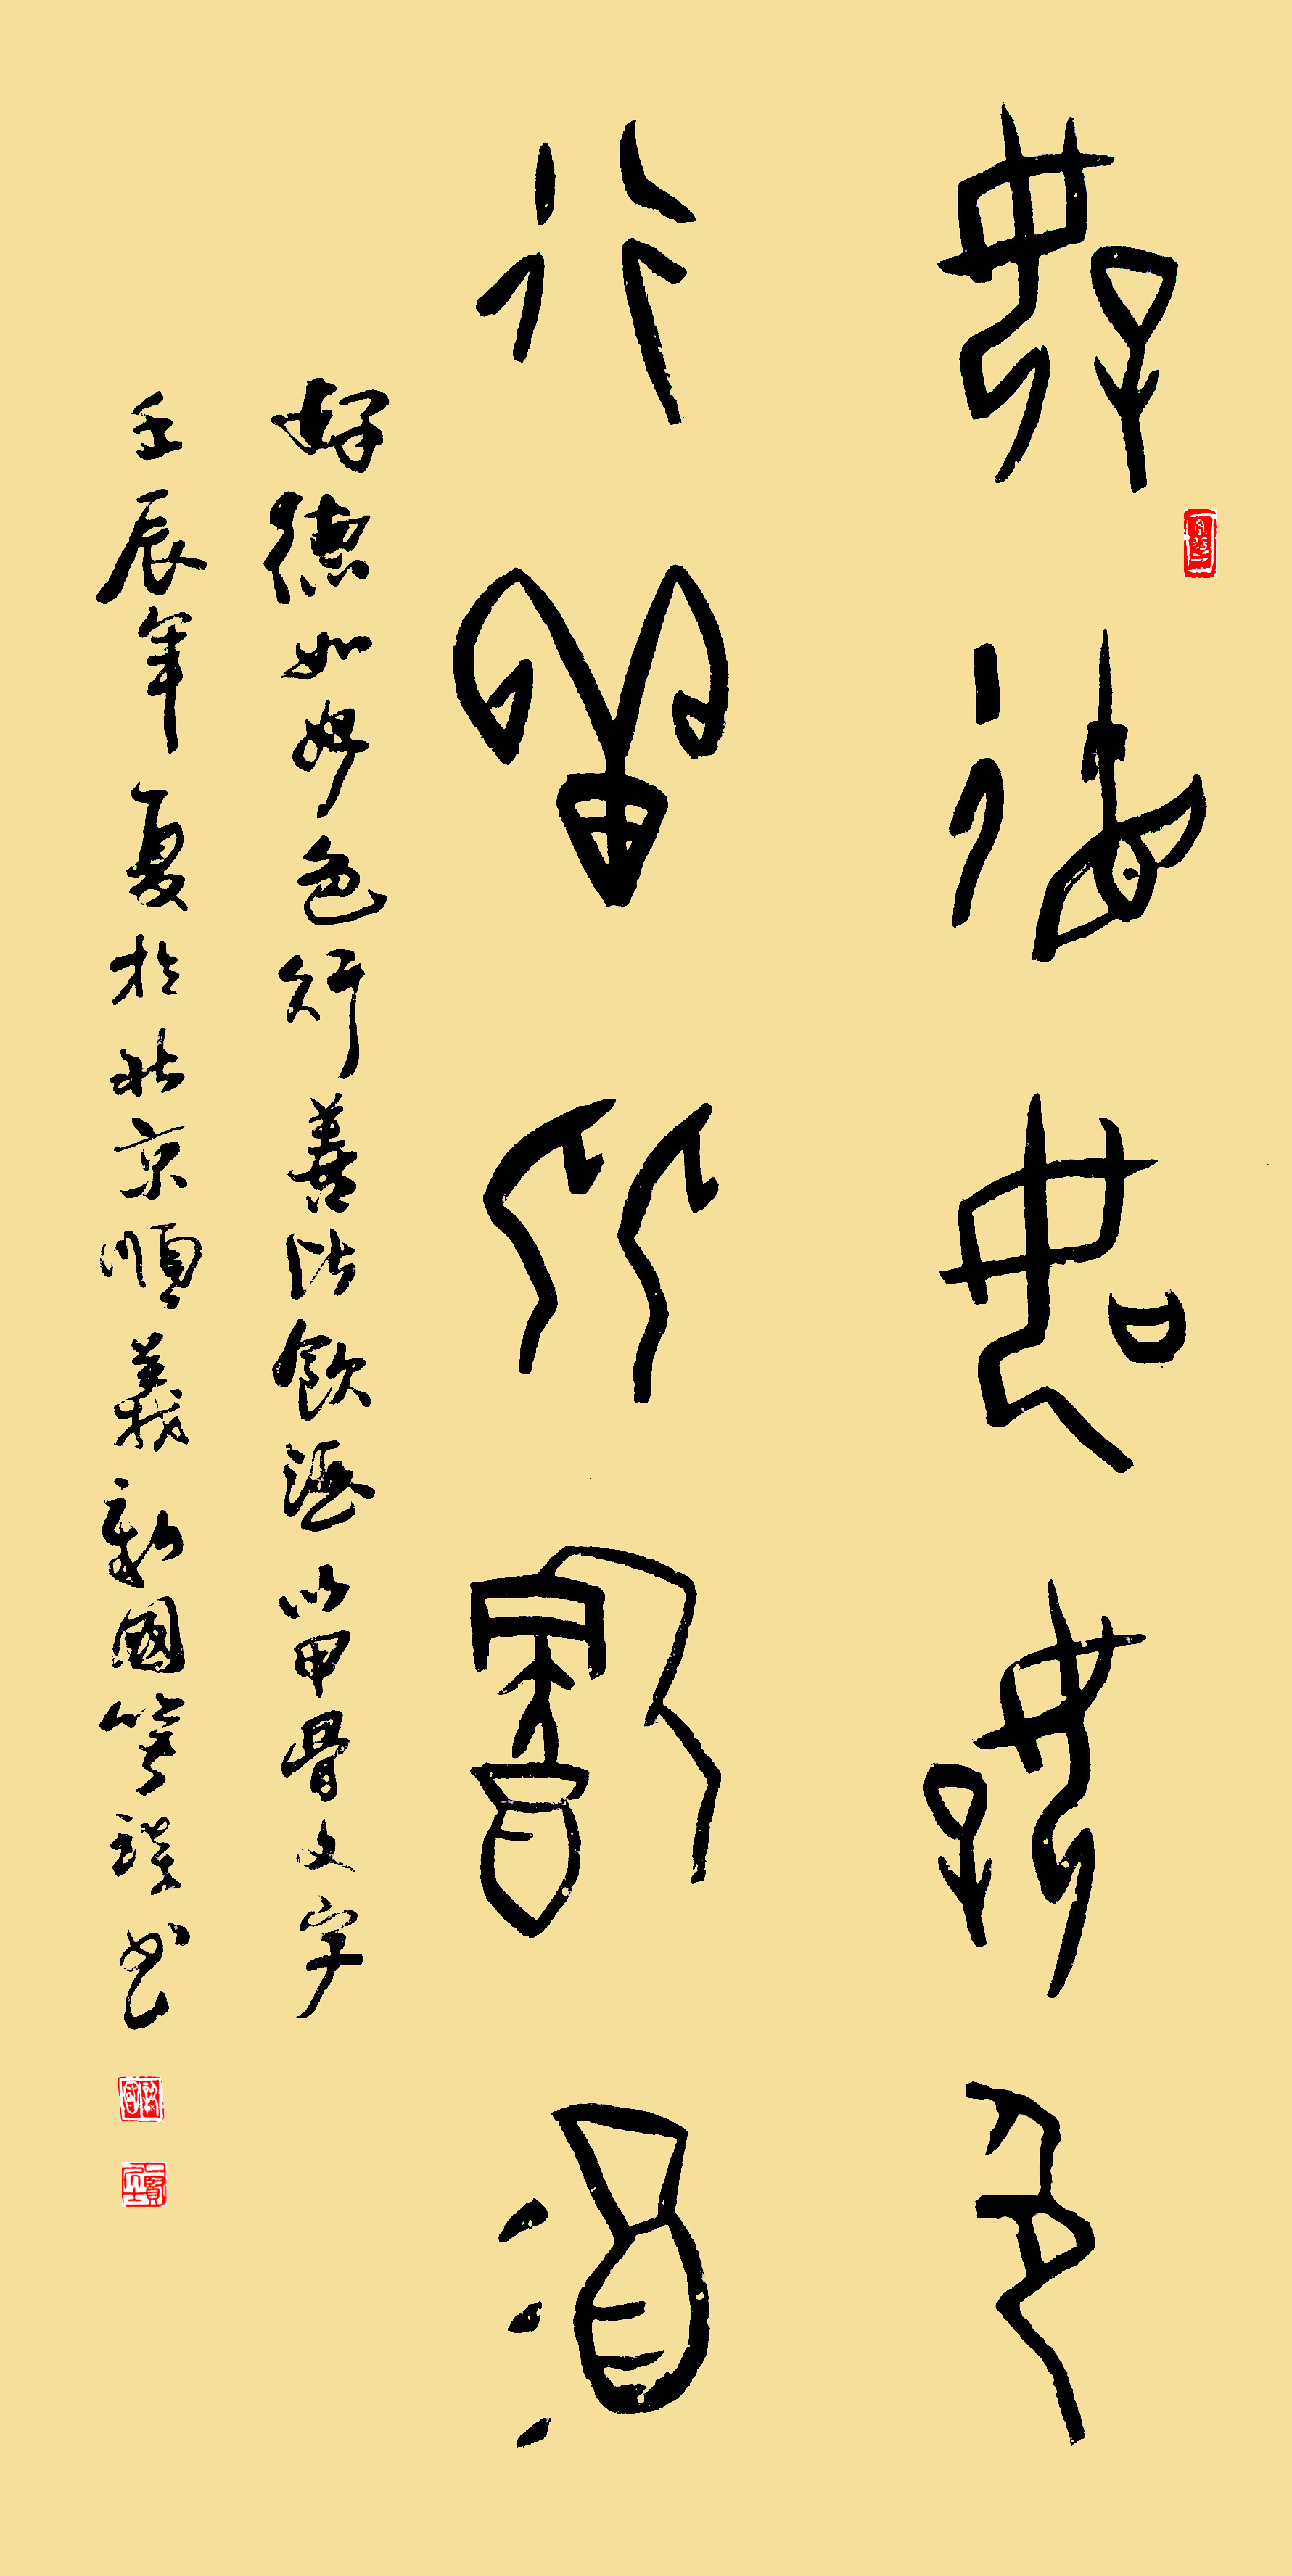 好德如好色
行善比飲酒
好德如好色行善比飲酒以甲骨文字
壬辰年夏於北京順義新國书